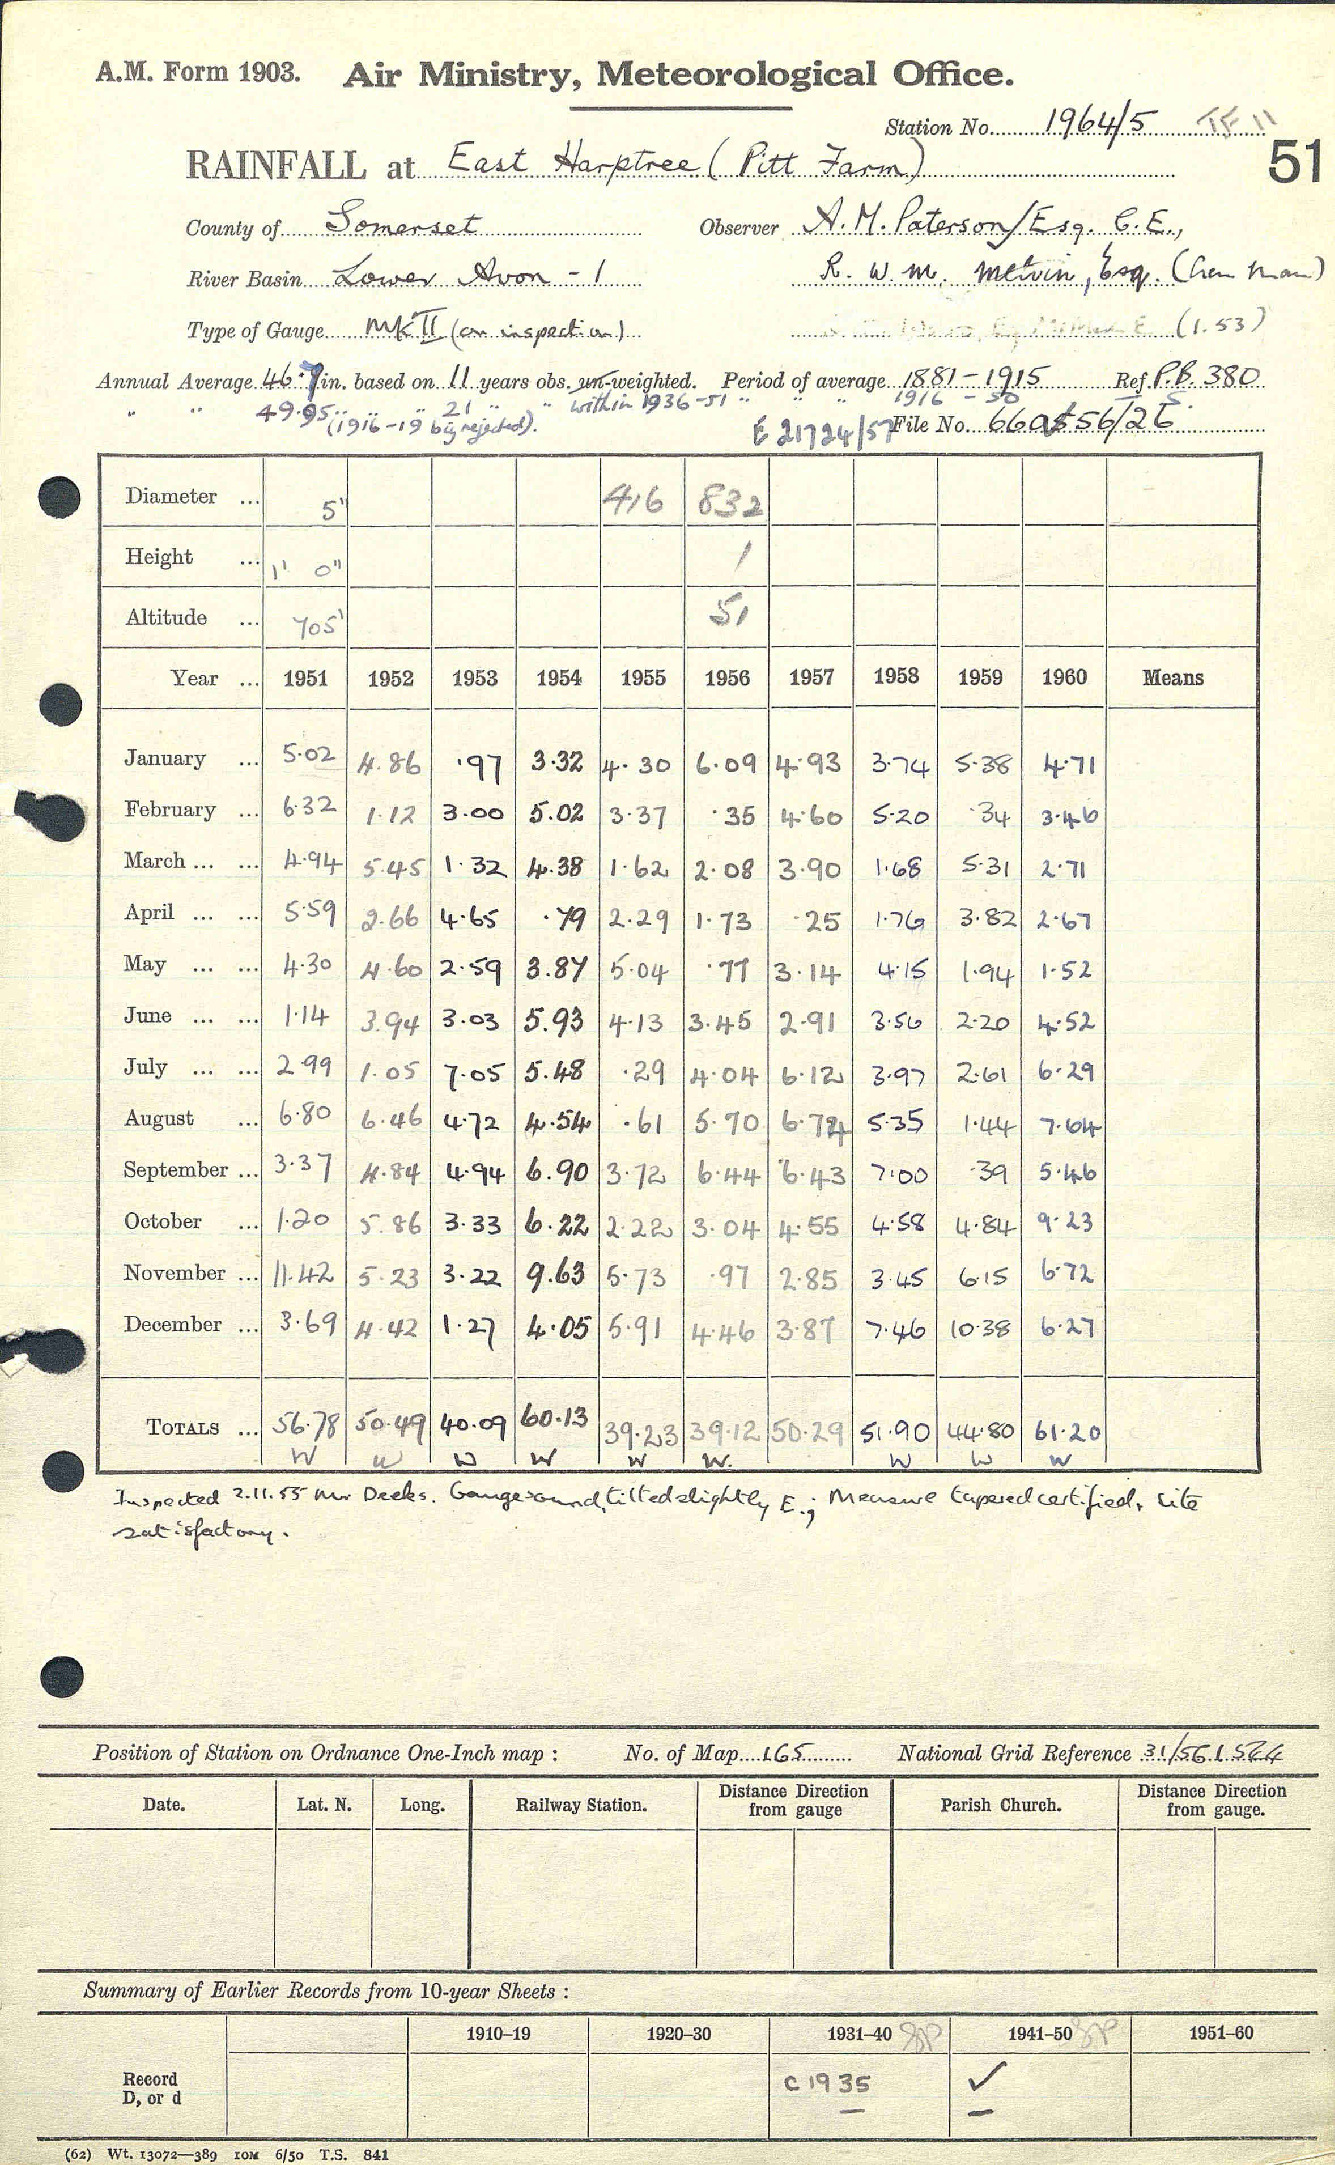 A.M. Form 1903. Air Ministry, Meteorological Office.
Station No. 1964/5 TF 11
51
RAINFALL at East Harptree (Pitt Farm)
County of Somerset Observer A.M. Paterson/Esq. C.E.,
River Basin Lower Avon - 1 R. W. M. Melvin, Esq.
Type of Gauge MK II (on inspection) (1.53)
Annual Average 46.7 in. based on 11 years obs. un-weighted. Period of average 1881-1915 Ref P.B. 380
" " 49.95 " " 21 " " within 1936-51 " " " 1916-50
(1916-19 being rejected). E 21724/57 File No.
Diameter ... 5" 416 832
Height ... 1' 0" 1
Altitude ... 705' 51
Year ... 1951 1952 1953 1954 1955 1956 1957 1958 1959 1960 Means
January ... 5.02 4.86 .97 3.32 4.30 6.09 4.93 3.74 5.38 4.71
February ... 6.32 1.12 3.00 5.02 3.37 .35 4.60 5.20 .34 3.46
March ... ... 4.94 5.45 1.32 4.38 1.62 2.08 3.90 1.68 5.31 2.71
April ... ... 5.59 2.66 4.65 .79 2.29 1.73 .25 1.76 3.82 2.67
May ... ... 4.30 4.60 2.59 3.87 5.04 .77 3.14 4.15 1.94 1.52
June ... ... 1.14 3.94 3.03 5.93 4.13 3.45 2.91 3.56 2.20 4.52
July ... ... 2.99 1.05 7.05 5.48 .29 4.04 6.12 3.97 2.61 6.29
August ... 6.80 6.46 4.72 4.54 .61 5.70 6.74 5.35 1.44 7.64
September ... 3.37 4.84 4.94 6.90 3.72 6.44 6.43 7.00 .39 5.46
October ... 1.20 5.86 3.33 6.22 2.22 3.04 4.55 4.58 4.84 9.23
November ... 11.42 5.23 3.22 9.63 5.73 .97 2.85 3.45 6.15 6.72
December ... 3.69 4.42 1.27 4.05 5.91 4.46 3.87 7.46 10.38 6.27
TOTALS ... 56.78 50.49 40.09 60.13 39.23 39.12 50.29 51.90 44.80 61.20
W W W W W W. W W W
Inspected 2.11.55 Mr Deeks. Gauge sound, tilted slightly E.; Measure tapered certified, site
satisfactory.
Position of Station on Ordnance One-Inch map : No. of Map 165 National Grid Reference 31/561544
Date. Lat. N. Long. Railway Station. Distance from gauge Direction Parish Church. Distance from gauge. Direction
Summary of Earlier Records from 10-year Sheets :
1910–19 1920–30 1931–40 SP 1941–50 SP 1951–60
Record C 1935 ✓
D, or d
(62) Wt. 13072—389 10M 6/50 T.S. 841